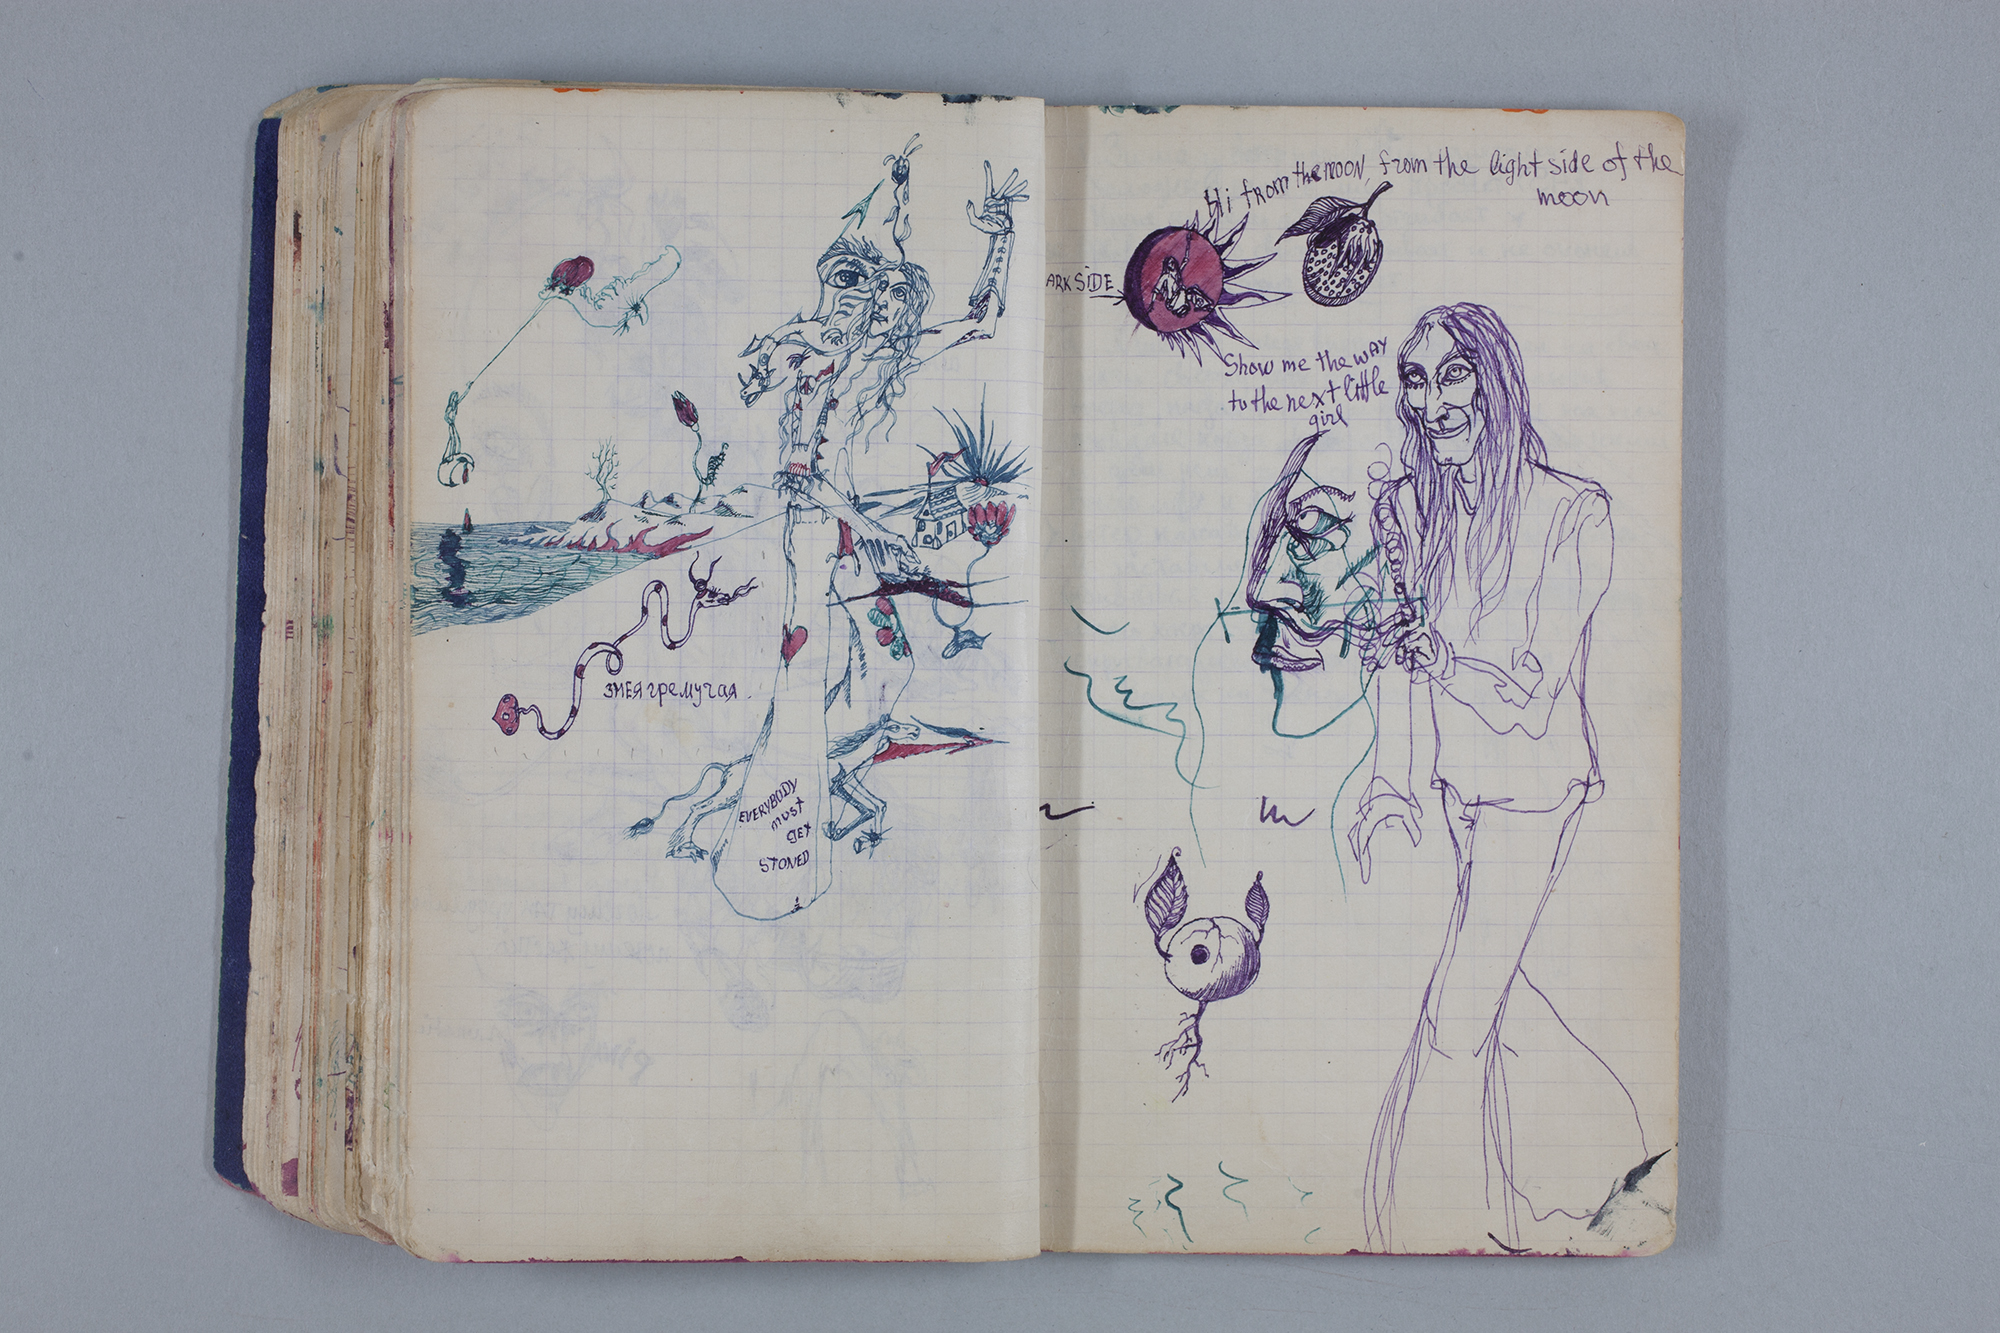 змея гремучая.
EVERYBODY
MUST
GET
STONED
Hi from the moon, from the light side of the
moon
ARK SIDE
Show me the way
to the next little
girl